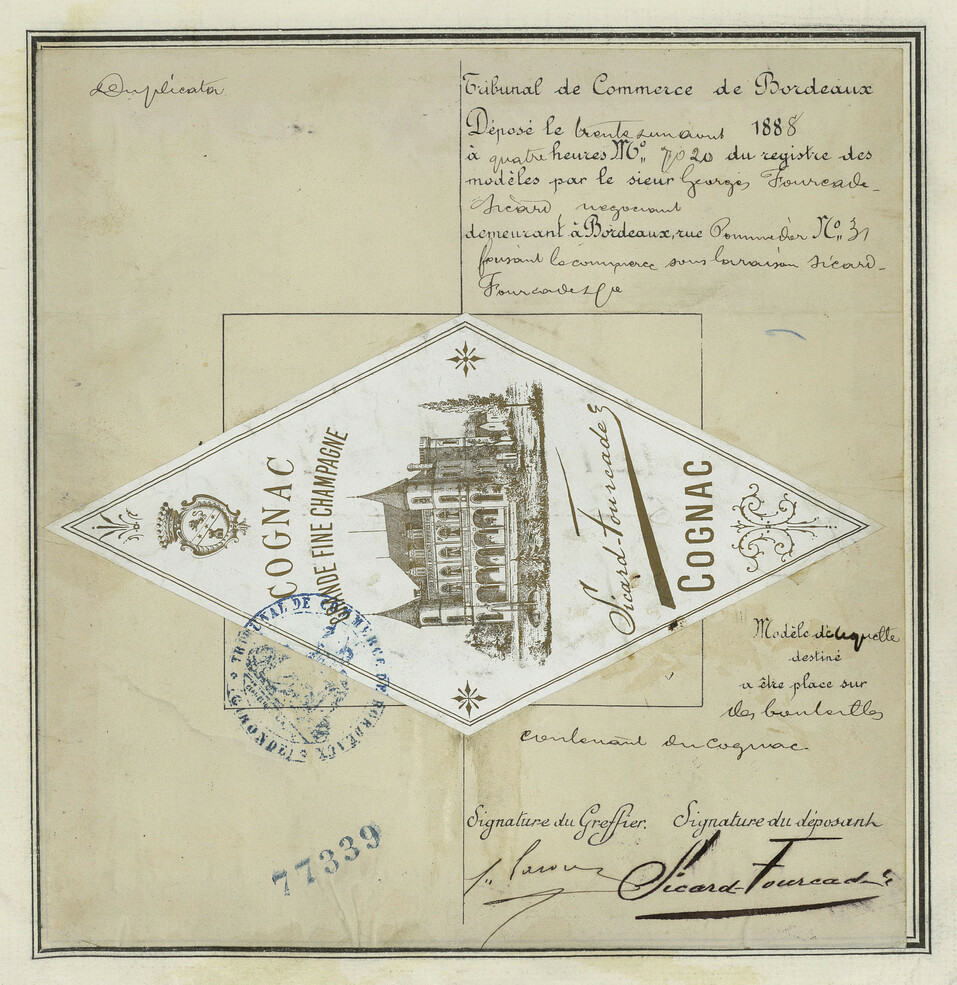 Duplicata
Tribunal de Commerce de Bordeaux
Déposé le trente un aout 1888
à quatre heures Nº 7020 du registre des
modèles par le sieur Georges Fourcade-
Sicard negociant
demeurant à Bordeaux, rue Pommedor Nº 31
faisant le commerce sous la raison Sicard-
Fourcade & Cie
COGNAC
GRANDE FINE CHAMPAGNE
Sicard-Fourcade
COGNAC
TRIBUNAL DE COMMERCE DE BORDEAUX
(GIRONDE)
Modèle d'etiquette
destiné
a être place sur
des bouteilles
contenant du cognac
Signature du Greffier. Signature du déposant
Sicard-Fourcade
77339